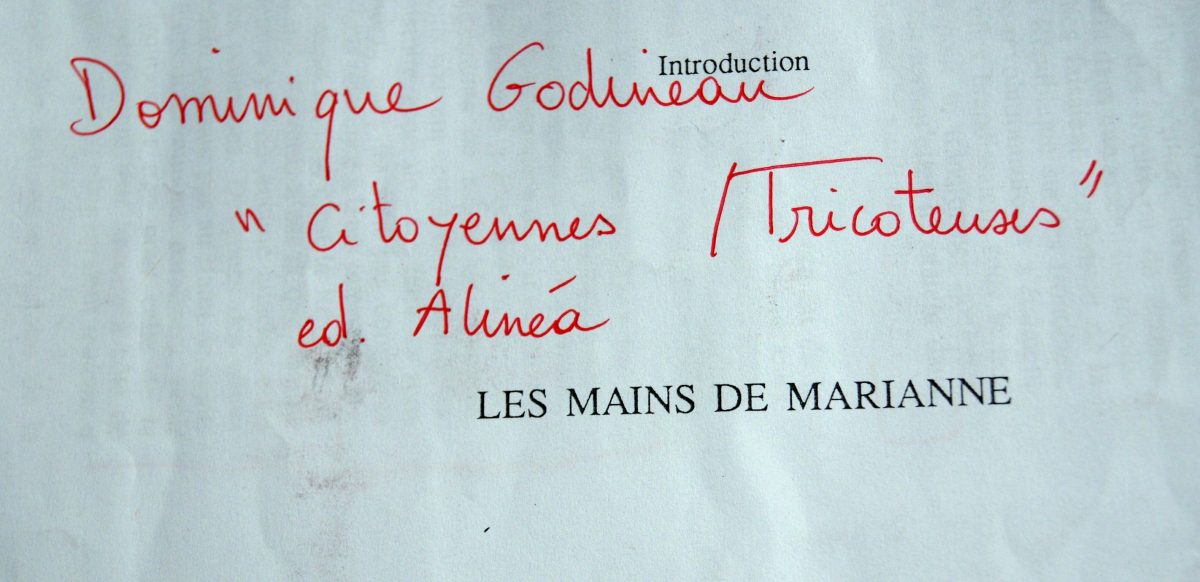 Introduction
Dominique Godineau
" Citoyennes Tricoteuses "
ed. Alinéa
LES MAINS DE MARIANNE